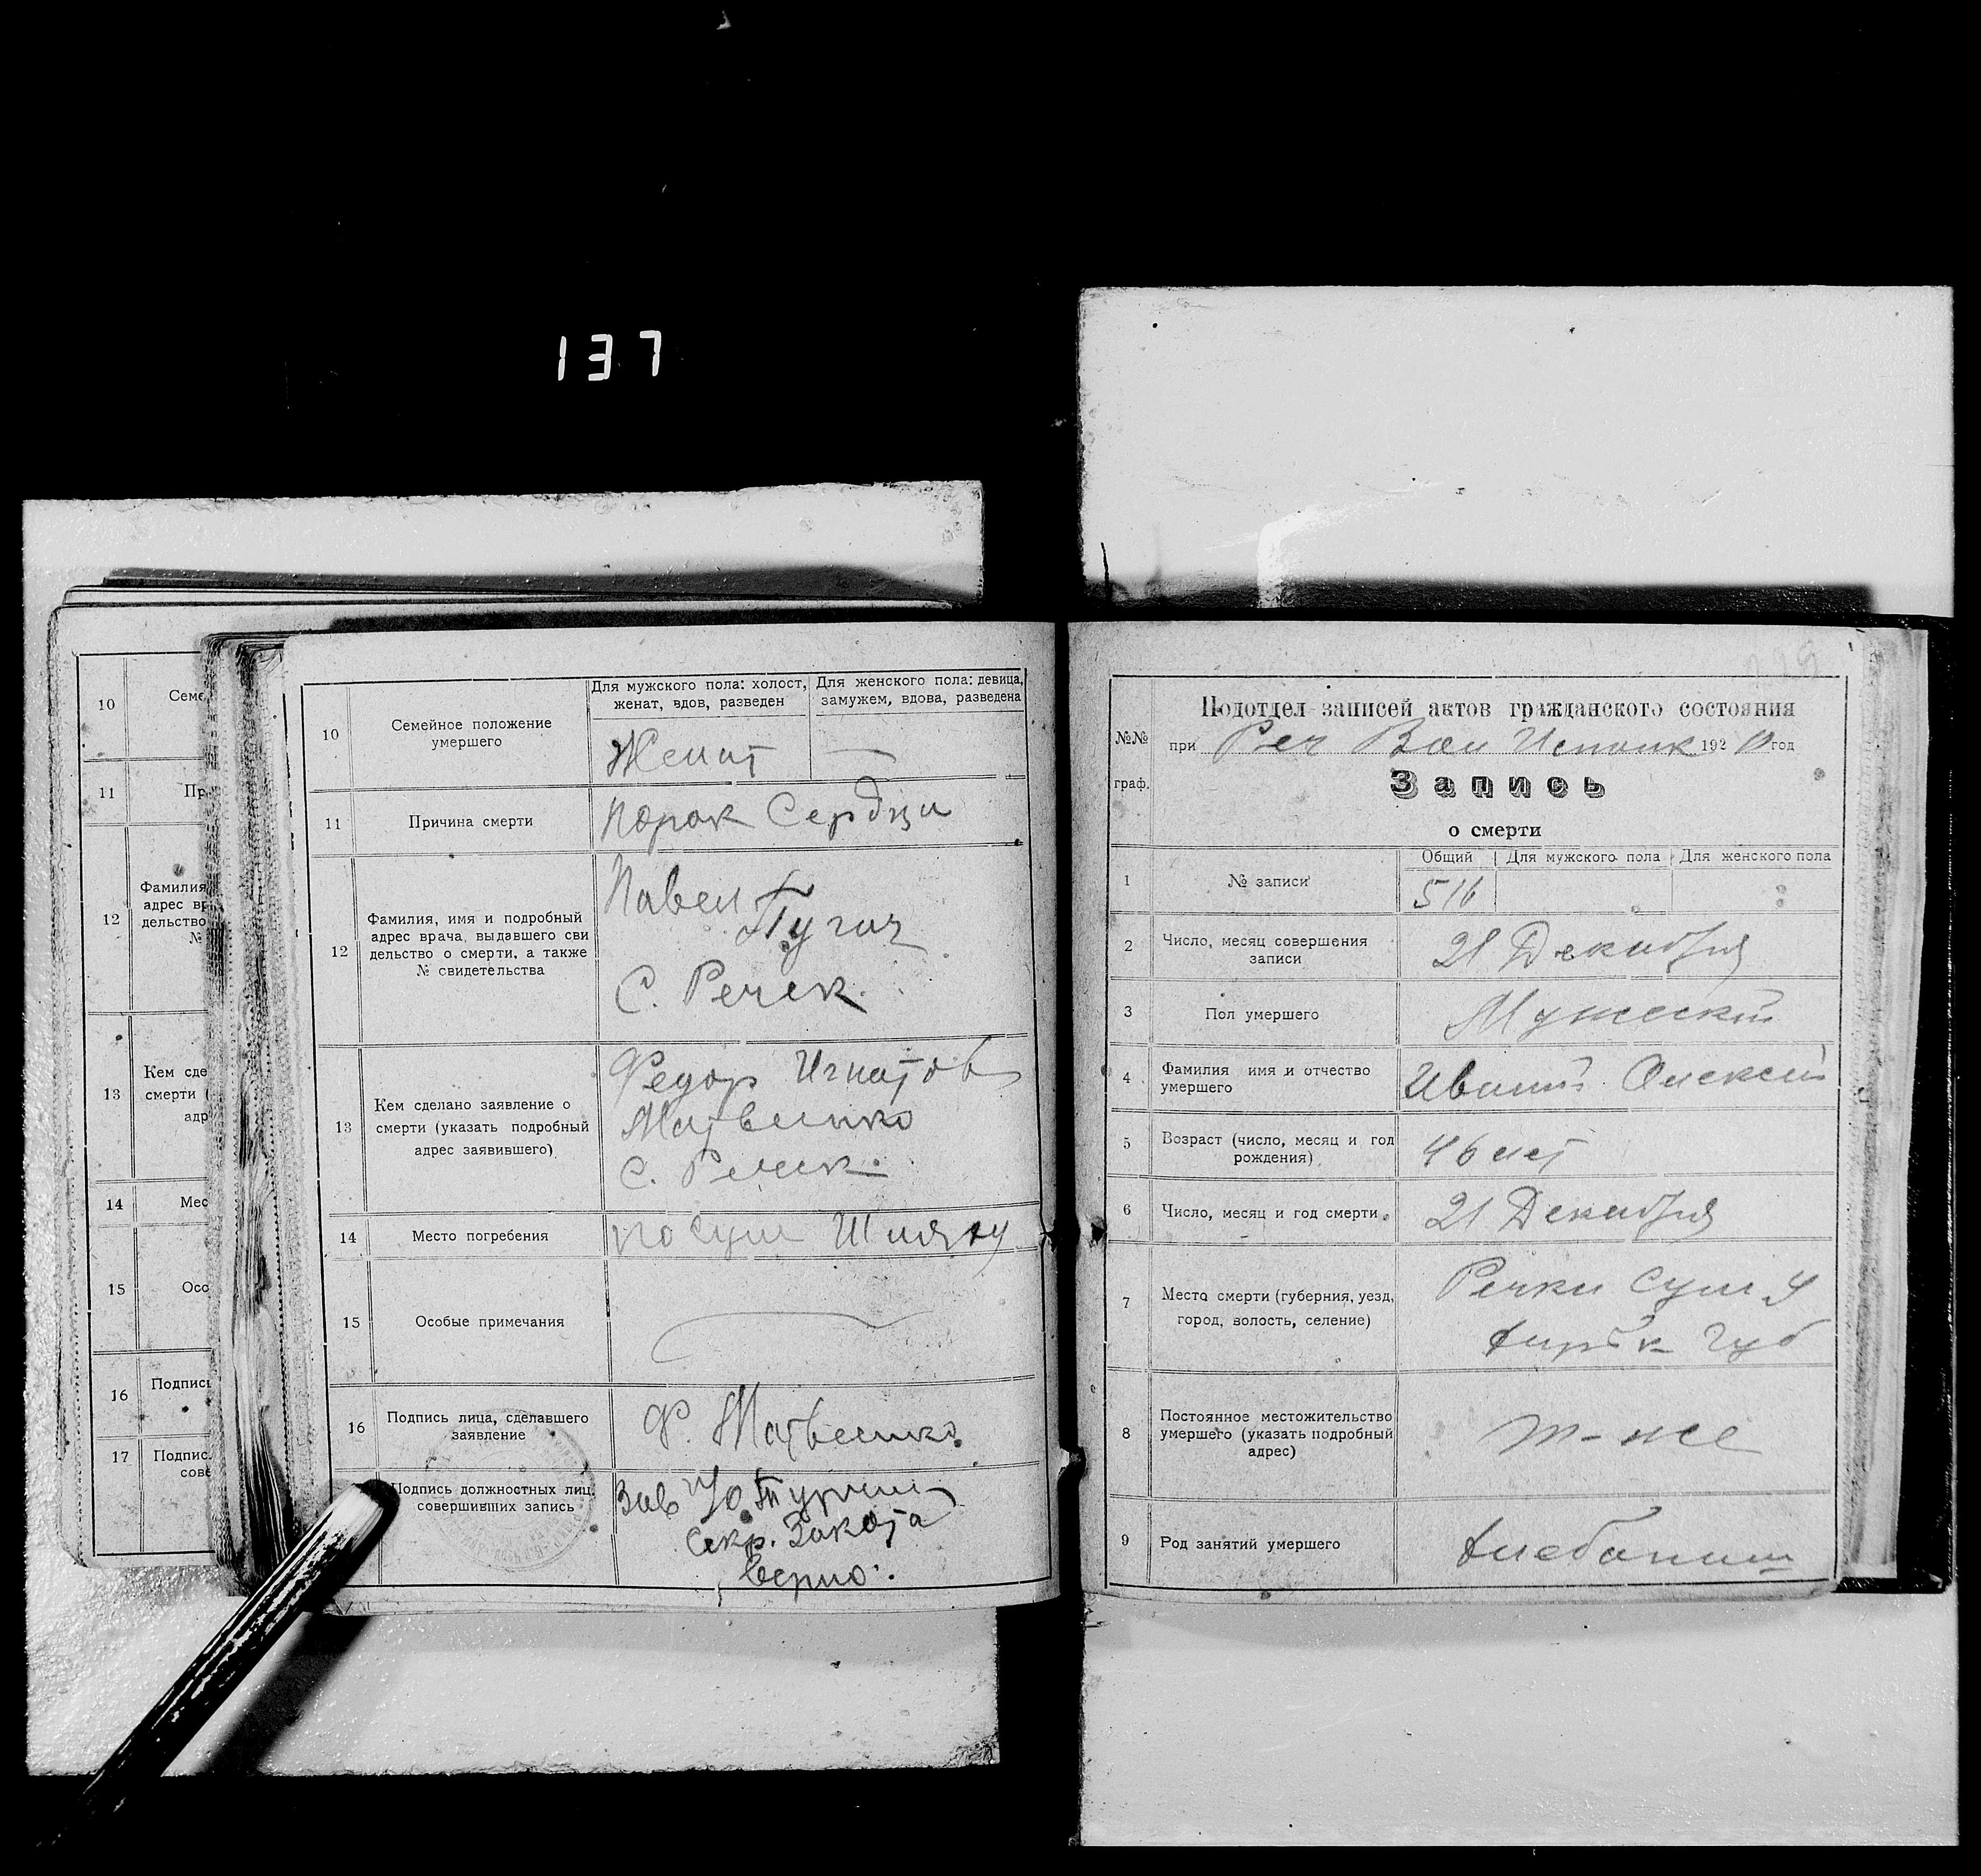 137
10
Семе
11
Пр
12
Фамилия
адрес вр
дельство
№
13
Кем сде
смерти (
адр
14
Мес
15
Осо
16
Подпись
17
Подпис
сове
10
Семейное положение
умершего
Для мужского пола: холост,
женат, вдов, разведен
Для женского пола: девица,
замужем, вдова, разведена
Женат —
11
Причина смерти
Порок Сердца
12
Фамилия, имя и подробный
адрес врача, выдавшего сви
дельство о смерти, а также
№ свидетельства
Павел
Пугач
С. Речек.
13
Кем сделано заявление о
смерти (указать подробный
адрес заявившего)
Федор Игнатов
Матвеенко
С. Речек.
14
Место погребения
по Сум Шляху
15
Особые примечания
16
Подпись лица, сделавшего
заявление
Ф. Матвеенко
Подпись должностных лиц,
совершивших запись
Зав п/о
Секр.
Верно:
Подотдел записей актов гражданского состояния
№№
граф.
при Реч Вол Исполк 192 0 год
Запись
о смерти
Общий Для мужского пола Для женского пола
1
№ записи
516
2
Число, месяц совершения
записи
21 Декабря
3
Пол умершего
Мужеский
4
Фамилия имя и отчество
умершего
Алексей
5
Возраст (число, месяц и год
рождения)
46 лет
6
Число, месяц и год смерти
21 Декабря
7
Место смерти (губерния, уезд,
город, волость, селение)
Речки Сум у
Харьк Губ
8
Постоянное местожительство
умершего (указать подробный
адрес)
т-же
9
Род занятий умершего
Хлебопаш